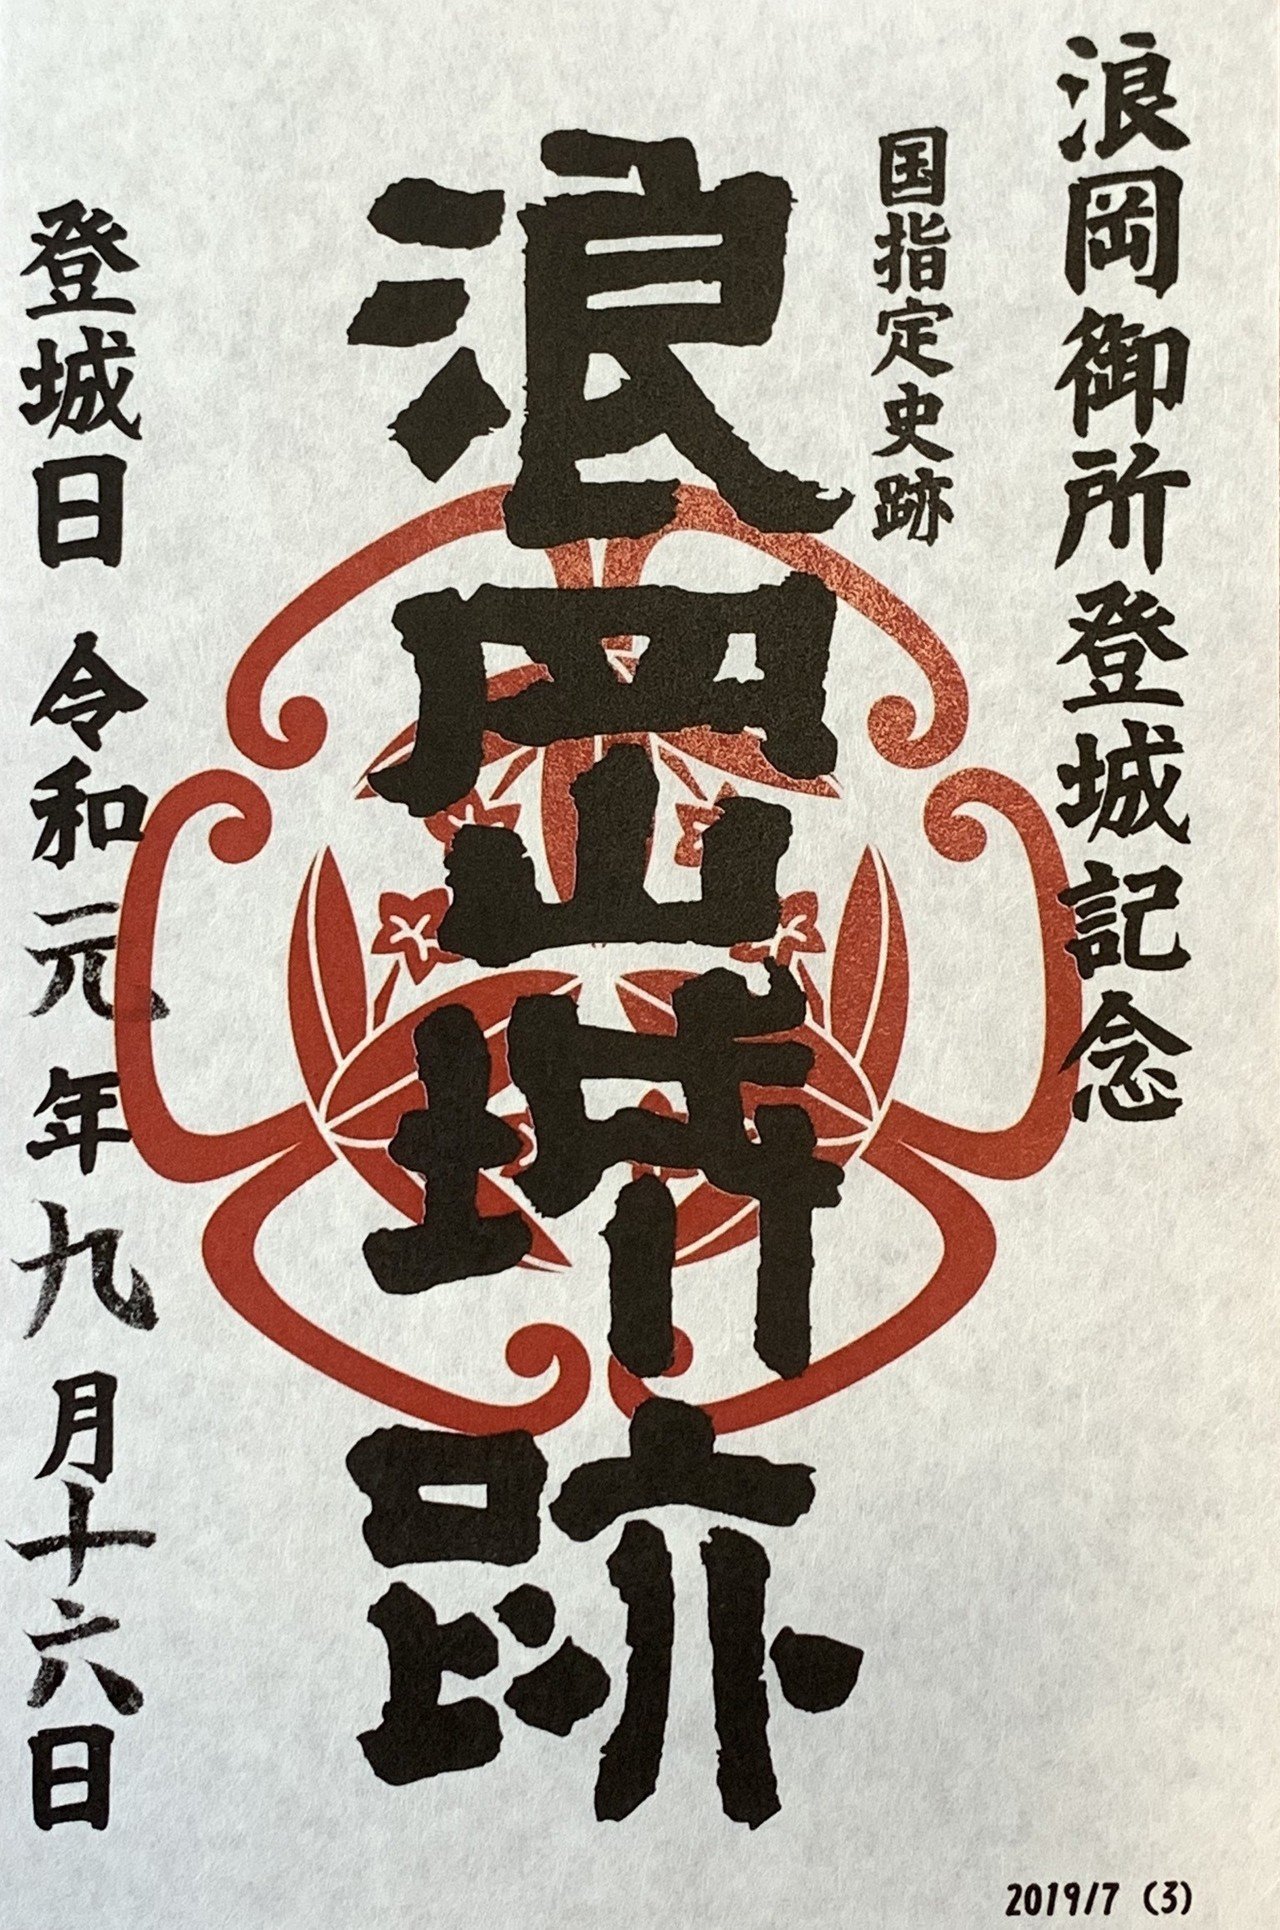 浪岡御所登城記念
国指定史跡
浪岡城跡
登城日 令和元年九月十六日
2019/7 (3)